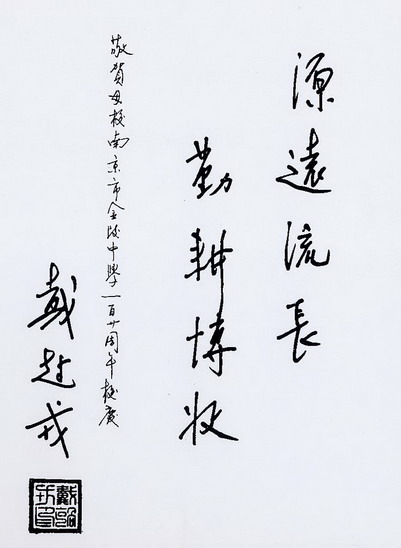 源遠流長
勤耕博收
敬賀母校南京市金陵中學一百廿周年校慶
戴尅戎
戴尅戎印